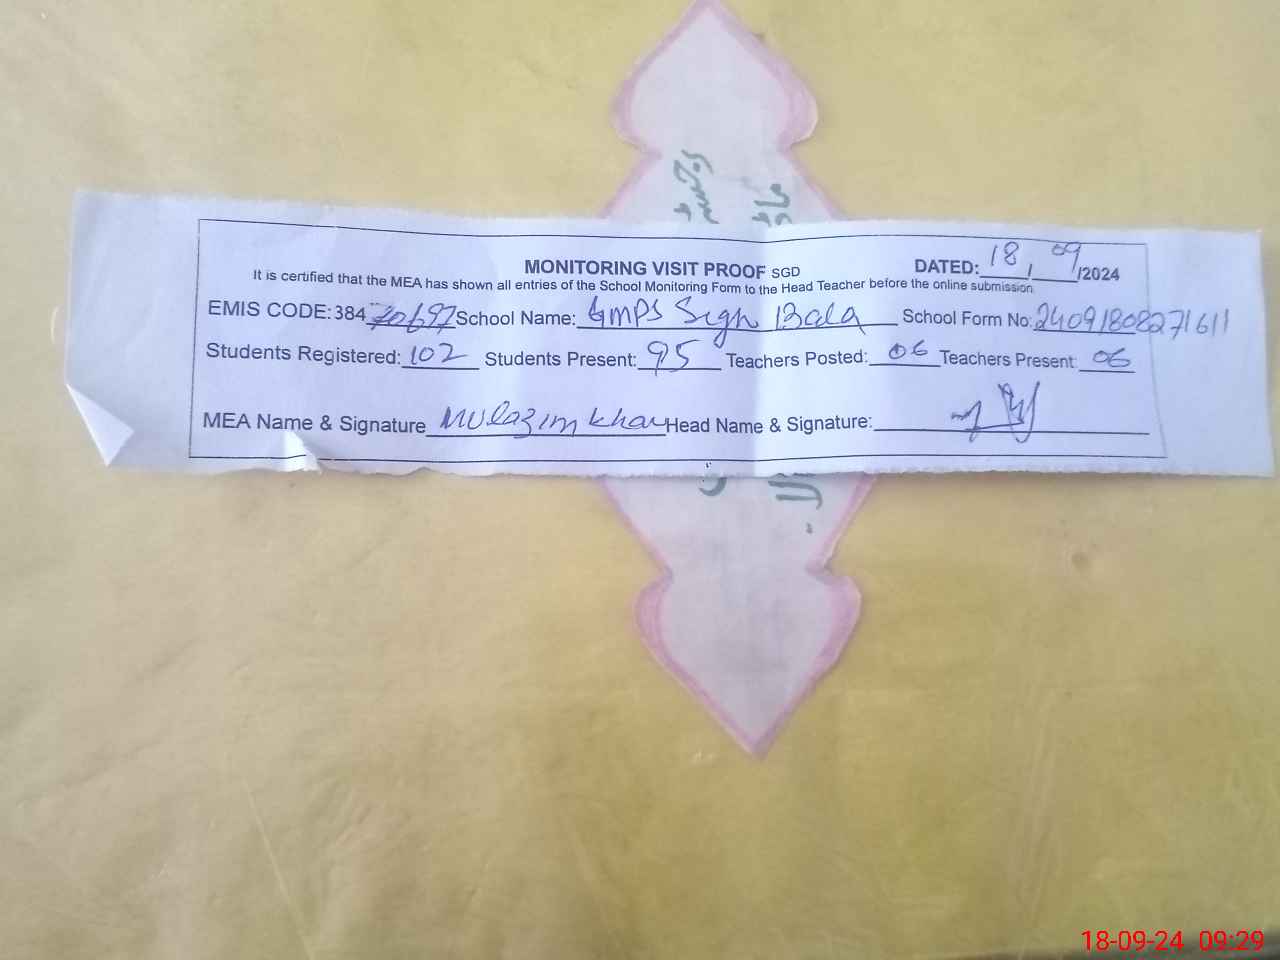 MONITORING VISIT PROOF SGD DATED: 18/09/2024
It is certified that the MEA has shown all entries of the School Monitoring Form to the Head Teacher before the online submission
EMIS CODE: 384 School Name: GMPS Bala School Form No: 24091808271611
Students Registered: 102 Students Present: 95 Teachers Posted: 06 Teachers Present: 06
MEA Name & Signature Mulazim khan Head Name & Signature:
18-09-24 09:29